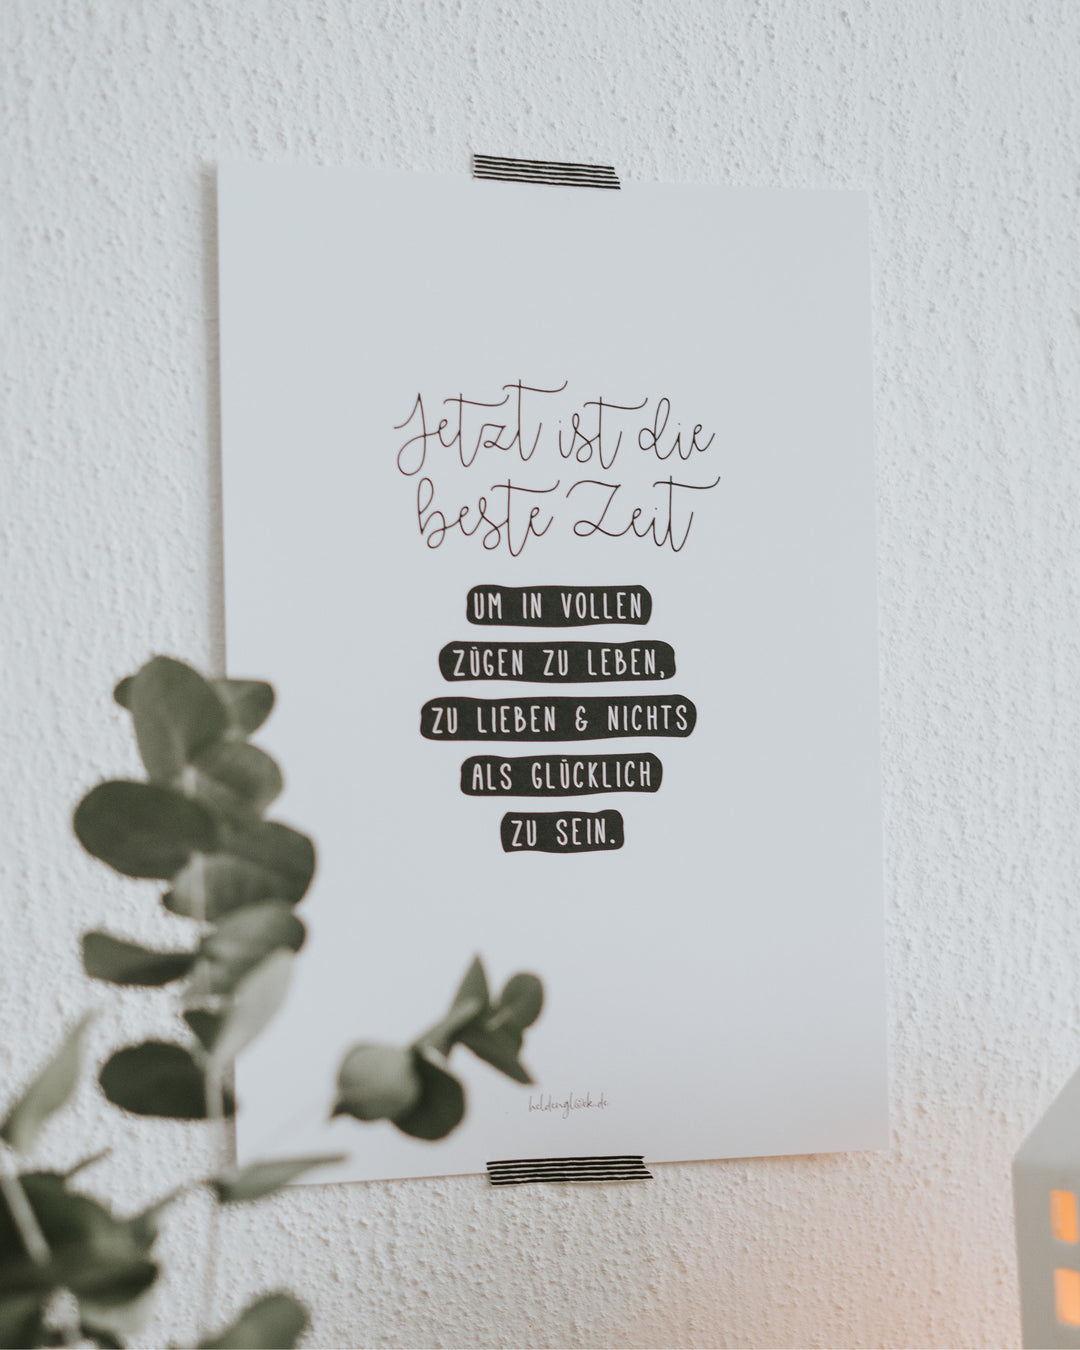 Jetzt ist die
beste Zeit
UM IN VOLLEN
ZÜGEN ZU LEBEN,
ZU LIEBEN & NICHTS
ALS GLÜCKLICH
ZU SEIN.
heldenglück.de